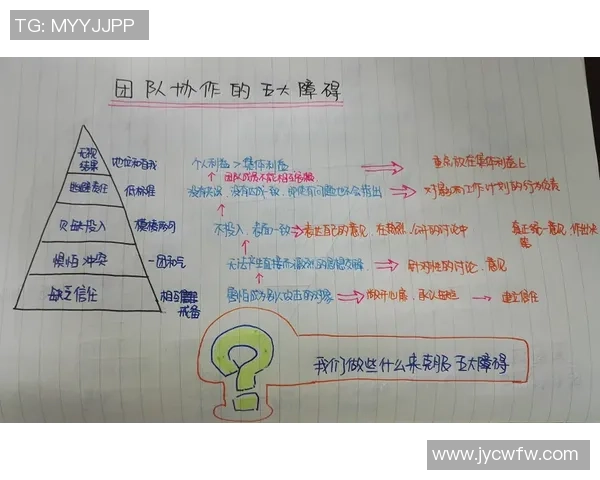 TG: MYYJJPP
团队协作的五大障碍
无视结果 地位和自我 个人利益 > 集体利益 重点放在集体利益上
团队成员不能相互
逃避责任 低标准 没有
对
欠缺投入 模棱两可 不投入,表面一致 表达自己的意见,在 公开的讨论中 真正统一意见,作出决策
惧怕冲突 一团和气 无法产生直接而激烈的思想交锋 针对性的讨论、意见
缺乏信任 相互 戒备 害怕成为别人攻击的对象 敞开心扉,承认 建立信任
我们做些什么来克服五大障碍
www.jycwfw.com